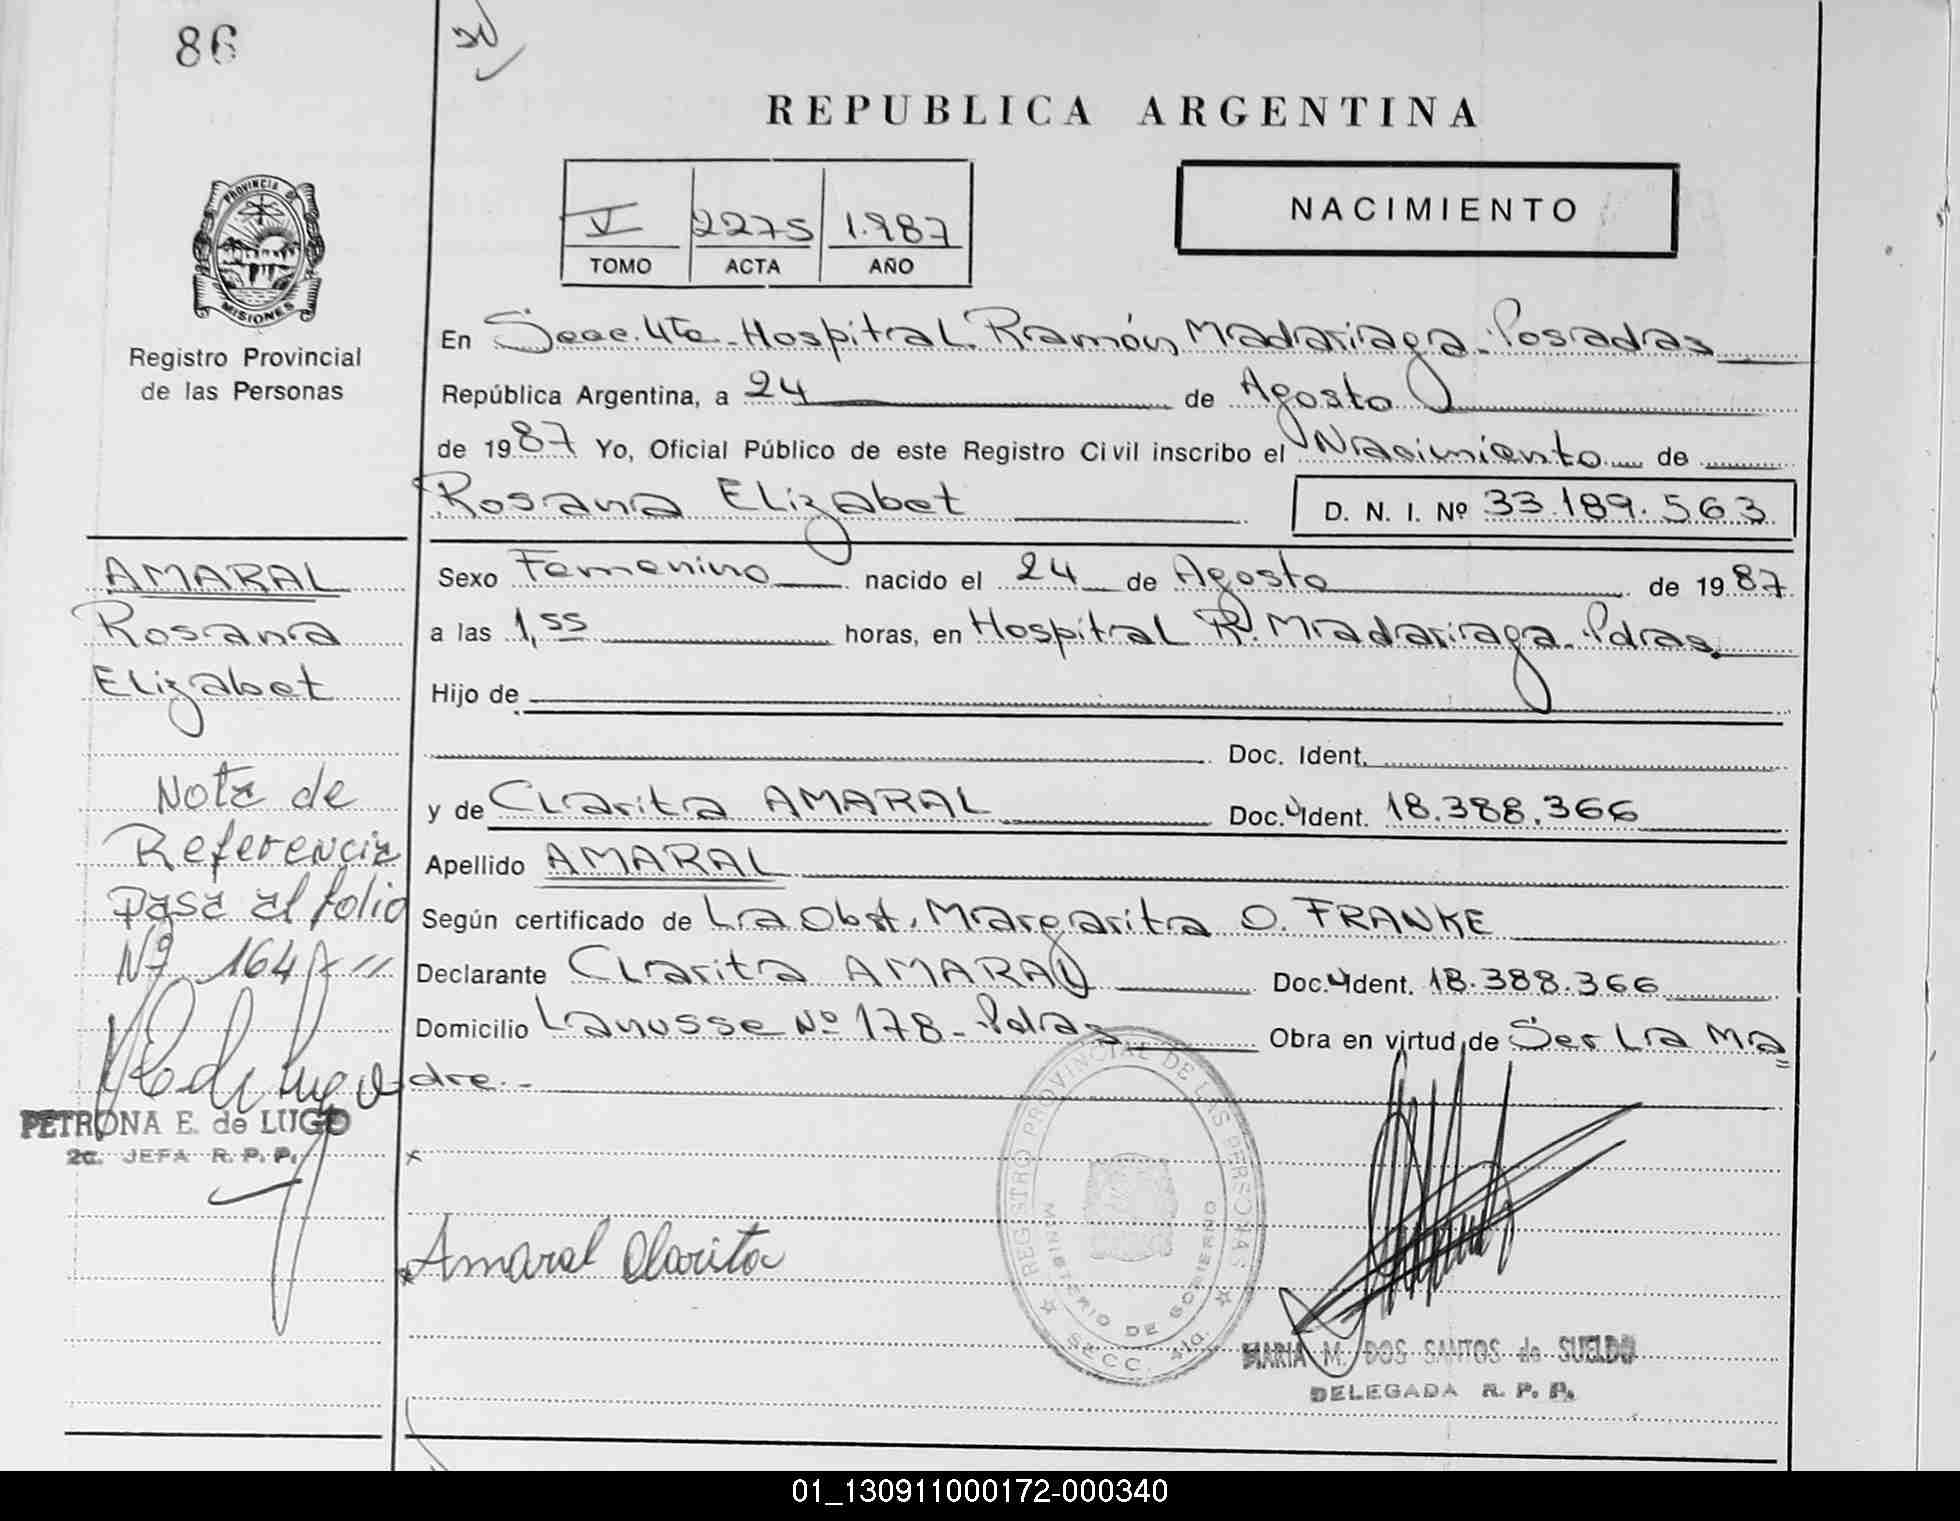 86
REPUBLICA ARGENTINA
V 2275 1.987
TOMO ACTA AÑO
NACIMIENTO
PROVINCIA DE
MISIONES
Registro Provincial
de las Personas
En Secc. 4ta. Hospital Ramón Madariaga - Posadas
República Argentina, a 24 de Agosto
de 1987 Yo, Oficial Público de este Registro Civil inscribo el Nacimiento de
Rosana Elizabet D. N. I. Nº 33.189.563
Sexo Femenino nacido el 24 de Agosto de 1987
a las 1,55 horas, en Hospital R. Madariaga - Pdas.
Hijo de
Doc. Ident.
y de Clarita AMARAL Doc. Ident. 18.388.366
Apellido AMARAL
Según certificado de La Obst. Margarita O. FRANKE
Declarante Clarita AMARAL Doc. Ident. 18.388.366
Domicilio Lanusse Nº 178 - Pdas Obra en virtud de Ser La Ma
dre.-
AMARAL
Rosana
Elizabet
Nota de
Referencia
pasa al folio
Nº 164
PETRONA E. de LUGO
2a. JEFA R. P. P.
Amaral Clarita
REGISTRO PROVINCIAL DE LAS PERSONAS
MINISTERIO DE GOBIERNO
SECC. 4ta.
MARIA M. DOS SANTOS de SUELDO
DELEGADA R. P. P.
01_130911000172-000340